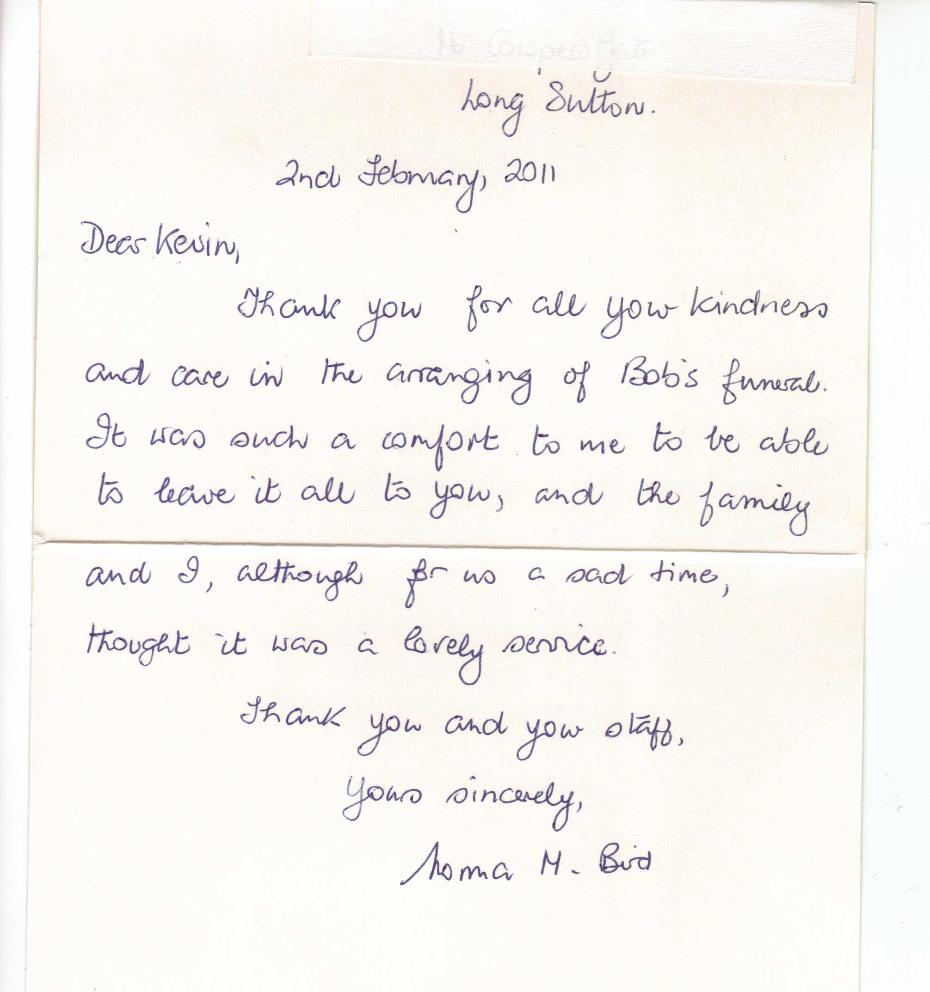 Long Sutton.
2nd February, 2011
Dear Kevin,
Thank you for all your kindness
and care in the arranging of Bob's funeral.
It was such a comfort to me to be able
to leave it all to you, and the family
and I, although for us a sad time,
thought it was a lovely service.
Thank you and your staff,
Yours sincerely,
Norma M. Bird